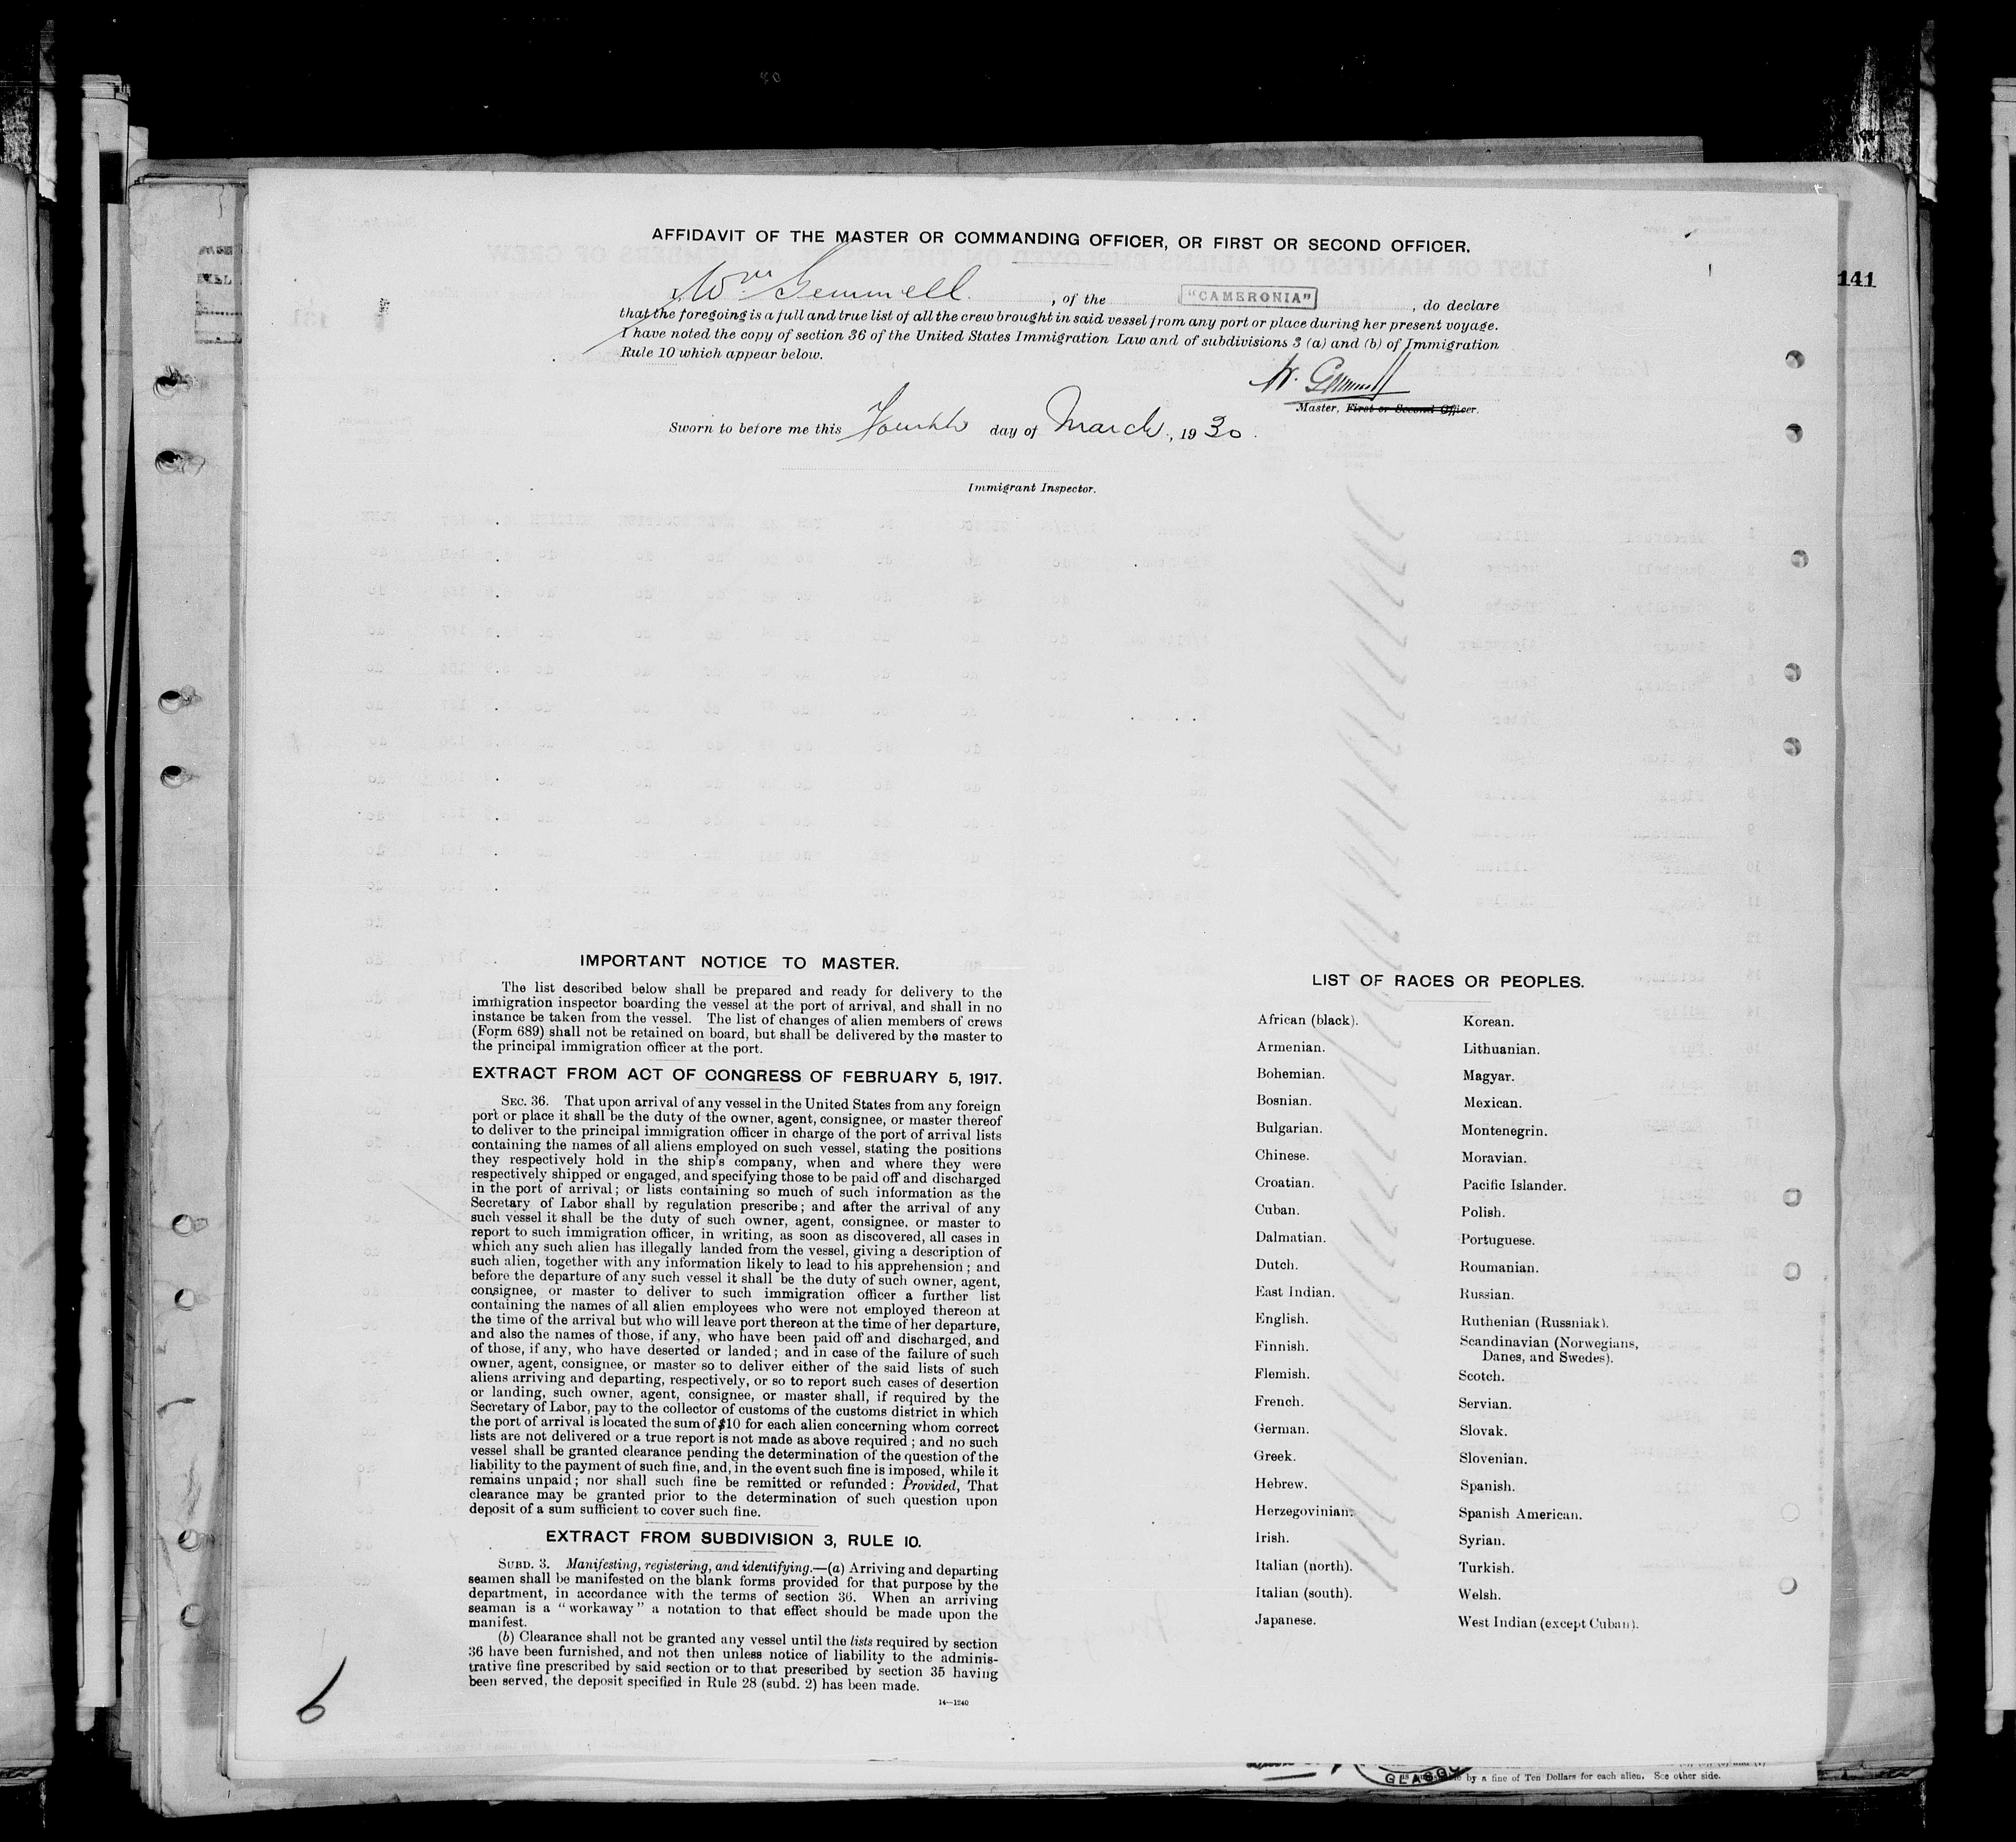 AFFIDAVIT OF THE MASTER OR COMMANDING OFFICER, OR FIRST OR SECOND OFFICER.
I, Wm Gemmell, of the "CAMERONIA", do declare
that the foregoing is a full and true list of all the crew brought in said vessel from any port or place during her present voyage.
I have noted the copy of section 36 of the United States Immigration Law and of subdivisions 3 (a) and (b) of Immigration
Rule 10 which appear below.
141
W. Gemmell
Master, First or Second Officer.
Sworn to before me this Fourth day of March, 1930.
Immigrant Inspector.
IMPORTANT NOTICE TO MASTER.
The list described below shall be prepared and ready for delivery to the
immigration inspector boarding the vessel at the port of arrival, and shall in no
instance be taken from the vessel. The list of changes of alien members of crews
(Form 689) shall not be retained on board, but shall be delivered by the master to
the principal immigration officer at the port.
EXTRACT FROM ACT OF CONGRESS OF FEBRUARY 5, 1917.
SEC. 36. That upon arrival of any vessel in the United States from any foreign
port or place it shall be the duty of the owner, agent, consignee, or master thereof
to deliver to the principal immigration officer in charge of the port of arrival lists
containing the names of all aliens employed on such vessel, stating the positions
they respectively hold in the ship's company, when and where they were
respectively shipped or engaged, and specifying those to be paid off and discharged
in the port of arrival; or lists containing so much of such information as the
Secretary of Labor shall by regulation prescribe; and after the arrival of any
such vessel it shall be the duty of such owner, agent, consignee, or master to
report to such immigration officer, in writing, as soon as discovered, all cases in
which any such alien has illegally landed from the vessel, giving a description of
such alien, together with any information likely to lead to his apprehension; and
before the departure of any such vessel it shall be the duty of such owner, agent,
consignee, or master to deliver to such immigration officer a further list
containing the names of all alien employees who were not employed thereon at
the time of the arrival but who will leave port thereon at the time of her departure,
and also the names of those, if any, who have been paid off and discharged, and
of those, if any, who have deserted or landed; and in case of the failure of such
owner, agent, consignee, or master so to deliver either of the said lists of such
aliens arriving and departing, respectively, or so to report such cases of desertion
or landing, such owner, agent, consignee, or master shall, if required by the
Secretary of Labor, pay to the collector of customs of the customs district in which
the port of arrival is located the sum of $10 for each alien concerning whom correct
lists are not delivered or a true report is not made as above required; and no such
vessel shall be granted clearance pending the determination of the question of the
liability to the payment of such fine, and, in the event such fine is imposed, while it
remains unpaid; nor shall such fine be remitted or refunded: Provided, That
clearance may be granted prior to the determination of such question upon
deposit of a sum sufficient to cover such fine.
EXTRACT FROM SUBDIVISION 3, RULE 10.
SUBD. 3. Manifesting, registering, and identifying.—(a) Arriving and departing
seamen shall be manifested on the blank forms provided for that purpose by the
department, in accordance with the terms of section 36. When an arriving
seaman is a "workaway" a notation to that effect should be made upon the
manifest.
(b) Clearance shall not be granted any vessel until the lists required by section
36 have been furnished, and not then unless notice of liability to the adminis-
trative fine prescribed by said section or to that prescribed by section 35 having
been served, the deposit specified in Rule 28 (subd. 2) has been made.
14—1240
6
LIST OF RACES OR PEOPLES.
African (black).
Armenian.
Bohemian.
Bosnian.
Bulgarian.
Chinese.
Croatian.
Cuban.
Dalmatian.
Dutch.
East Indian.
English.
Finnish.
Flemish.
French.
German.
Greek.
Hebrew.
Herzegovinian.
Irish.
Italian (north).
Italian (south).
Japanese.
Korean.
Lithuanian.
Magyar.
Mexican.
Montenegrin.
Moravian.
Pacific Islander.
Polish.
Portuguese.
Roumanian.
Russian.
Ruthenian (Russniak).
Scandinavian (Norwegians,
Danes, and Swedes).
Scotch.
Servian.
Slovak.
Slovenian.
Spanish.
Spanish American.
Syrian.
Turkish.
Welsh.
West Indian (except Cuban).
by a fine of Ten Dollars for each alien. See other side.